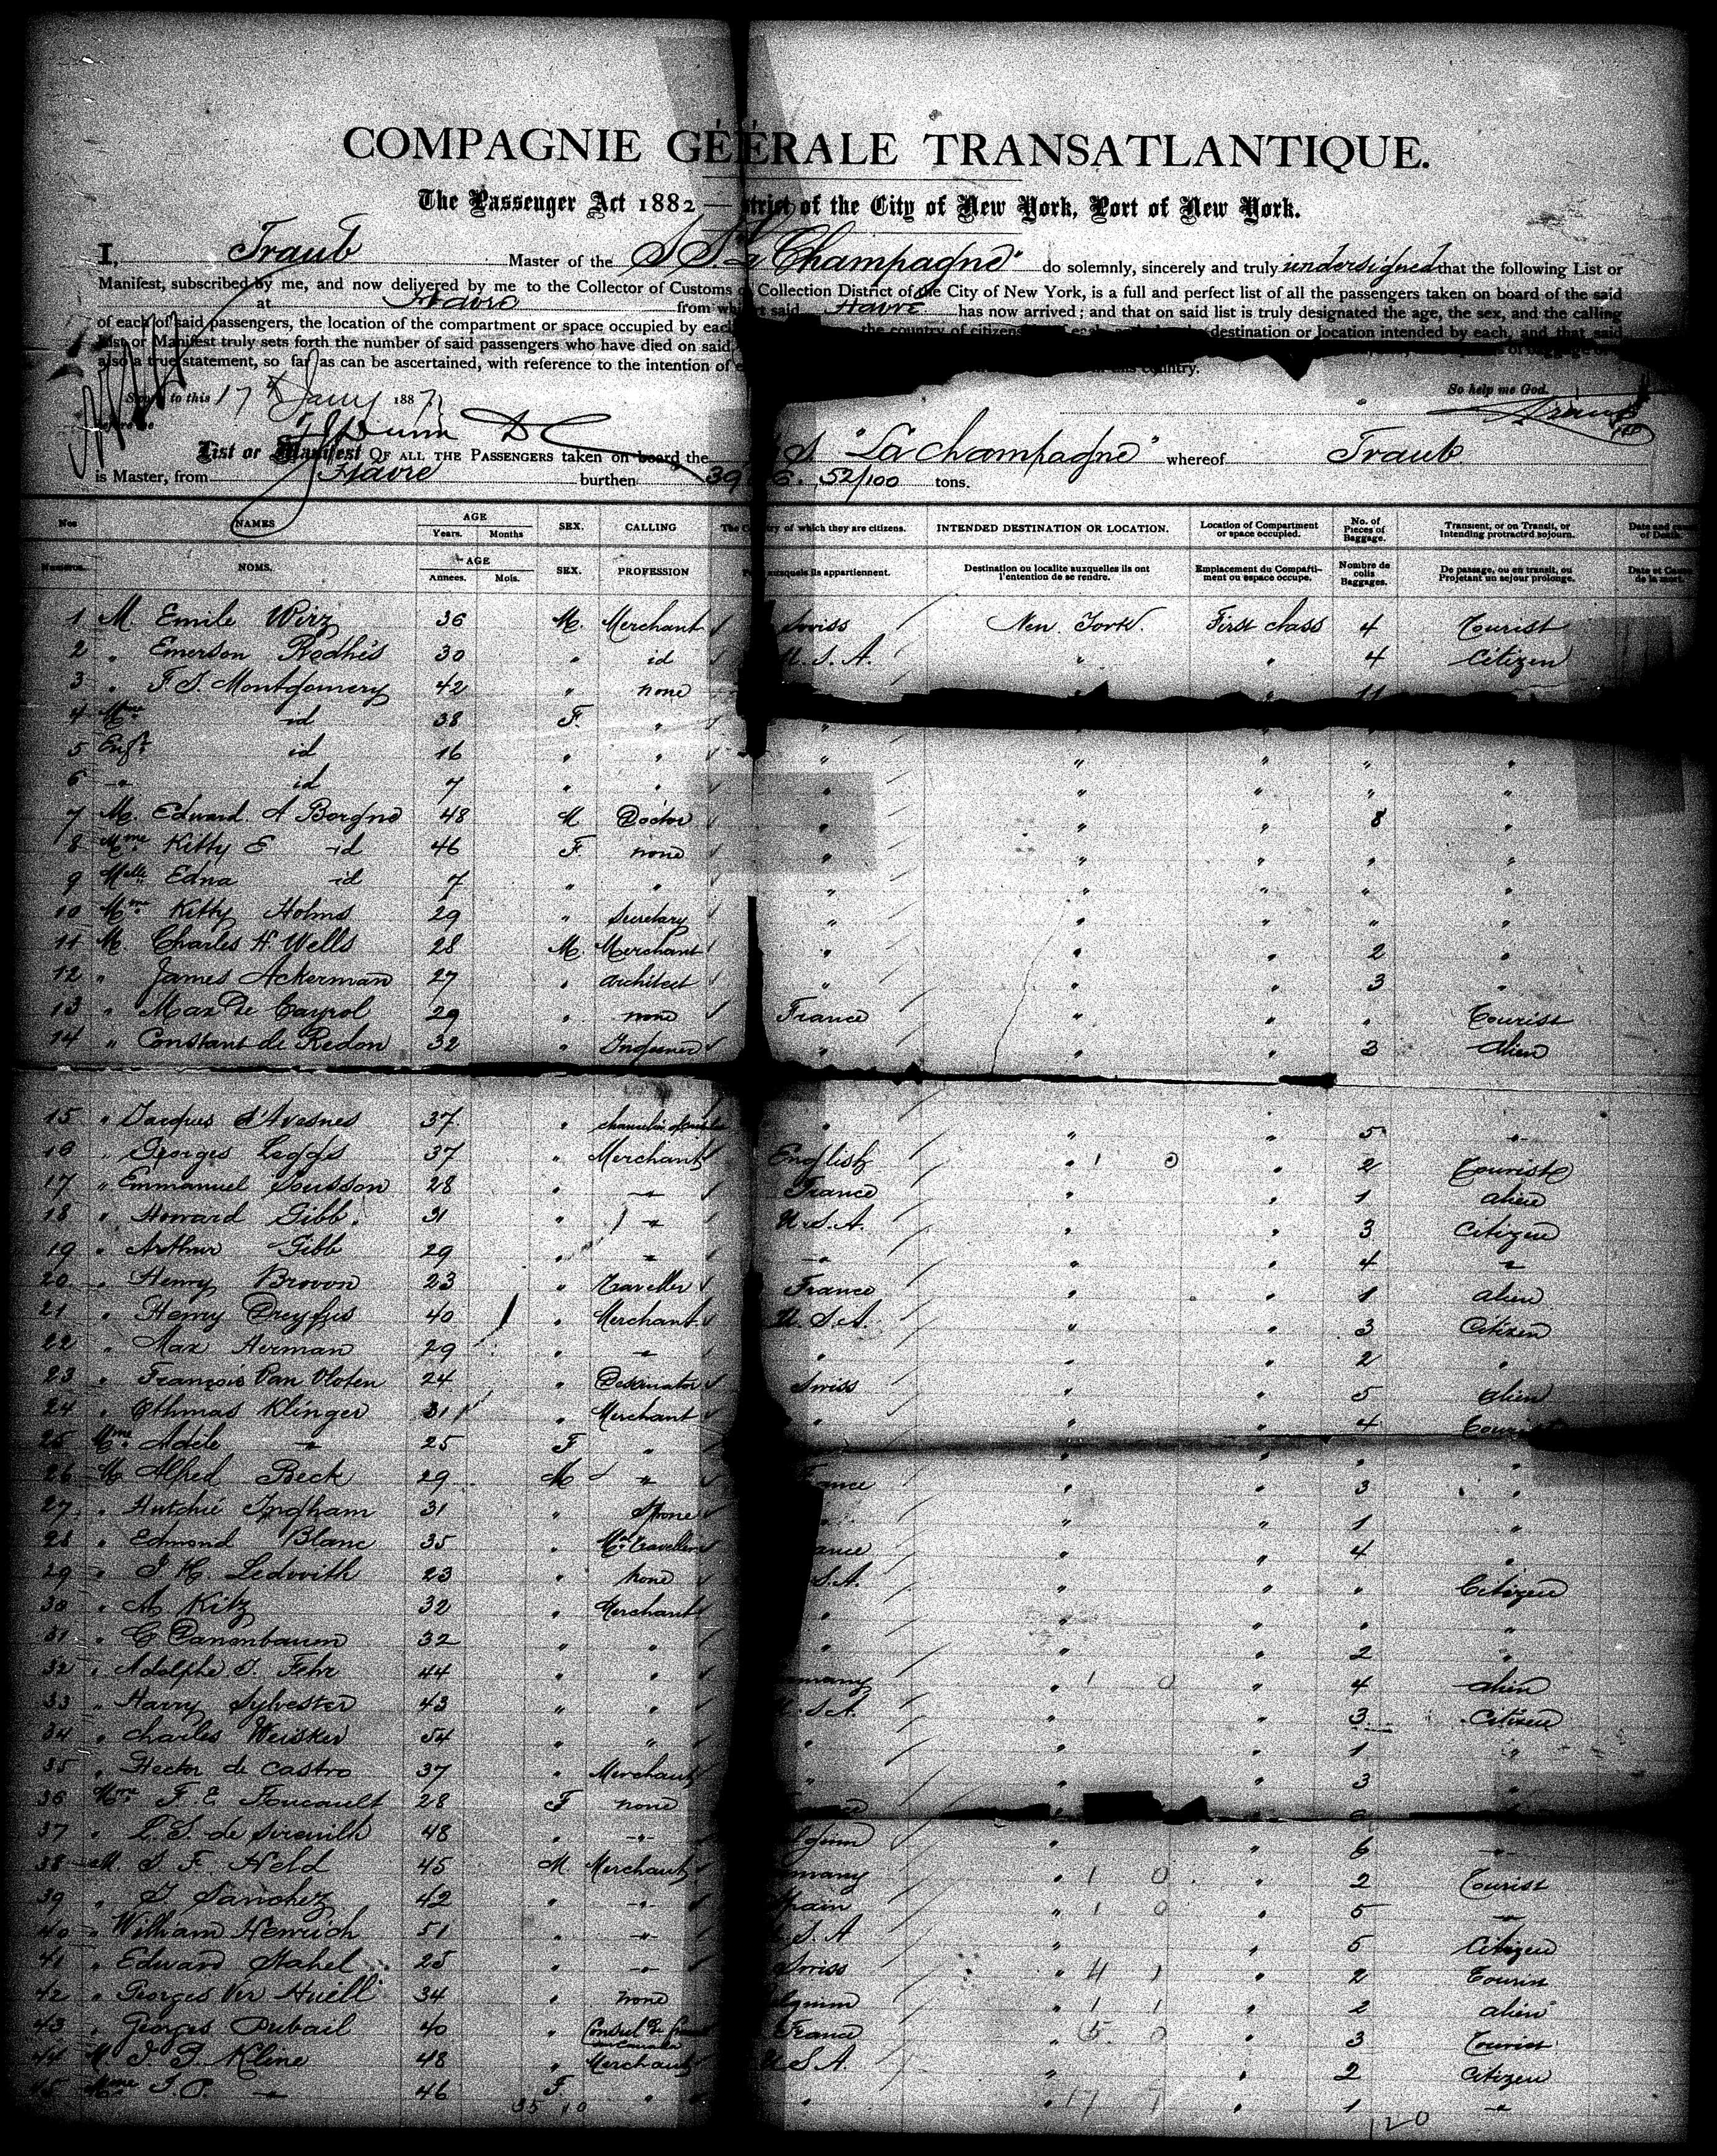 COMPAGNIE GÉÉRALE TRANSATLANTIQUE.
The Passenger Act 1882 — strict of the City of New York, Port of New York.
I, Traub Master of the S S. La Champagne" do solemnly, sincerely and truly undersigned that the following List or
Manifest, subscribed by me, and now delivered by me to the Collector of Customs Collection District of the City of New York, is a full and perfect list of all the passengers taken on board of the said
at Havre from said Havre has now arrived; and that on said list is truly designated the age, the sex, and the calling
of each of said passengers, the location of the compartment or space occupied by each the country of citizens destination or location intended by each, and that said
List or Manifest truly sets forth the number of said passengers who have died on said
also a true statement, so far as can be ascertained, with reference to the intention of country.
So help me God.
to this 17 Jany 1887 Traub
List or Manifest OF ALL THE PASSENGERS taken on board the S "La Champagne" whereof Traub
is Master, from Havre burthen 39 6. 52/100 tons.
Nos NAMES AGE Years. Months SEX. CALLING of which they are citizens. INTENDED DESTINATION OR LOCATION. Location of Compartment or space occupied. No. of Pieces of Baggage. Transient, or on Transit, or Intending protracted sojourn. Date and cause of Death.
Numeros. NOMS. AGE Annees. Mois. SEX. PROFESSION auxquels ils appartiennent. Destination ou localite auxquelles ils ont l'entention de se rendre. Emplacement du Compartiment ou espace occupe. Nombre de colis Baggages. De passage, ou en transit, ou Projetant un sejour prolonge. Date et Cause de la mort.
1 M. Emile Wirz 36 M. Merchant Swiss New York. First class 4 Tourist
2 " Emerson Rodhés 30 " id U. S. A. " " 4 Citizen
3 " F. S. Montgomery 42 " none " " 11
4 Mme id 38 F. " "
5 Enft id 16 " " " " " " "
6 " id 7 " " " " " " "
7 M. Edward A Borgne 48 M Doctor " " " 8 "
8 Mme Kitty E id 46 F. none " " " " "
9 Melle Edna id 7 " " " " " " "
10 Mme Kitty Holms 29 " Secretary " " " " "
11 M. Charles H. Wells 28 M. Merchant " " " 2 "
12 " James Ackerman 27 " architect " " " 3 "
13 " Max de Cayrol 29 " none France " " " Tourist
14 " Constant de Redon 32 " " " " 3 alien
15 " Jacques d'Avesnes 37 " " " " 5 "
16 " Georges Leggs 37 " Merchant English " 1 0 " 2 Tourist
17 " Emmanuel Sousson 28 " " France " " 1 alien
18 " Howard Gibb. 31 " " U.S.A. " " 3 Citizen
19 " Arthur Gibb 29 " " " " " 4 "
20 " Henry Brown 23 " Traveller France " " 1 alien
21 " Henry Dreyfus 40 " Merchant U. S. A. " " 3 Citizen
22 " Max Herman 29 " " " " " 2 "
23 " François Van Vloten 24 " Dessinator Swiss " " 5 alien
24 " Othmas Klinger 31 " Merchant " " " 4 Tourist
25 Mme Adèle " 25 F " " " " "
26 M. Alfred Beck 29 M " France " " 3 "
27 " Hutchié Ingham 31 " " " " " 1 "
28 " Edmond Blanc 35 " ance " " 4 "
29 " J. H. Ledwith 23 " none S.A. " " " Citizen
30 " A. Kitz 32 " Merchant " " " " "
31 " G Danenbaum 32 " " " " " 2 "
32 " Adolphe J. Fehr 44 " " many " 1 0 " 4 alien
33 " Harry Sylvester 43 " " U.S.A. " " 3 Citizen
34 " Charles Weisker 54 " " " " " 1 "
35 " Hector de Castro 37 " Merchant " " " 3 "
36 Mme F. E. Foucault 28 F none
37 " L. S. de 48 " " lgium " " 6 "
38 M. S. F. Held 45 M Merchant many " 1 0 " 2 Tourist
39 " J. Sanchez 42 " " Spain " 1 0 " 5 "
40 " William Henrich 51 " " S. A " " 5 Citizen
41 " Edward Stahel 25 " " Swiss " 4 1 " 2 Tourist
42 " Georges Ver Huell 34 " none lgium " 1 1 " 2 alien
43 " Georges Dubail 40 " Consul de France au Canada France " 5 0 " 3 Tourist
44 M. J. P. Kline 48 " Merchant U S A. " " 2 Citizen
45 Mme J. P. " 46 F. " " " 17 7 " 1 "
35 10 120